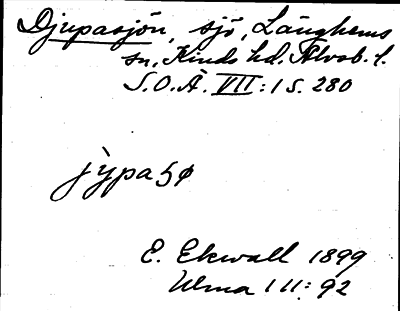 Djupasjön, sjö, Länghems
sn, Kinds hd. Älvsb. l.
S.O.Ä. VII:1 s. 280
jỳpa
E. Ekwall 1899
Ulma 111:92